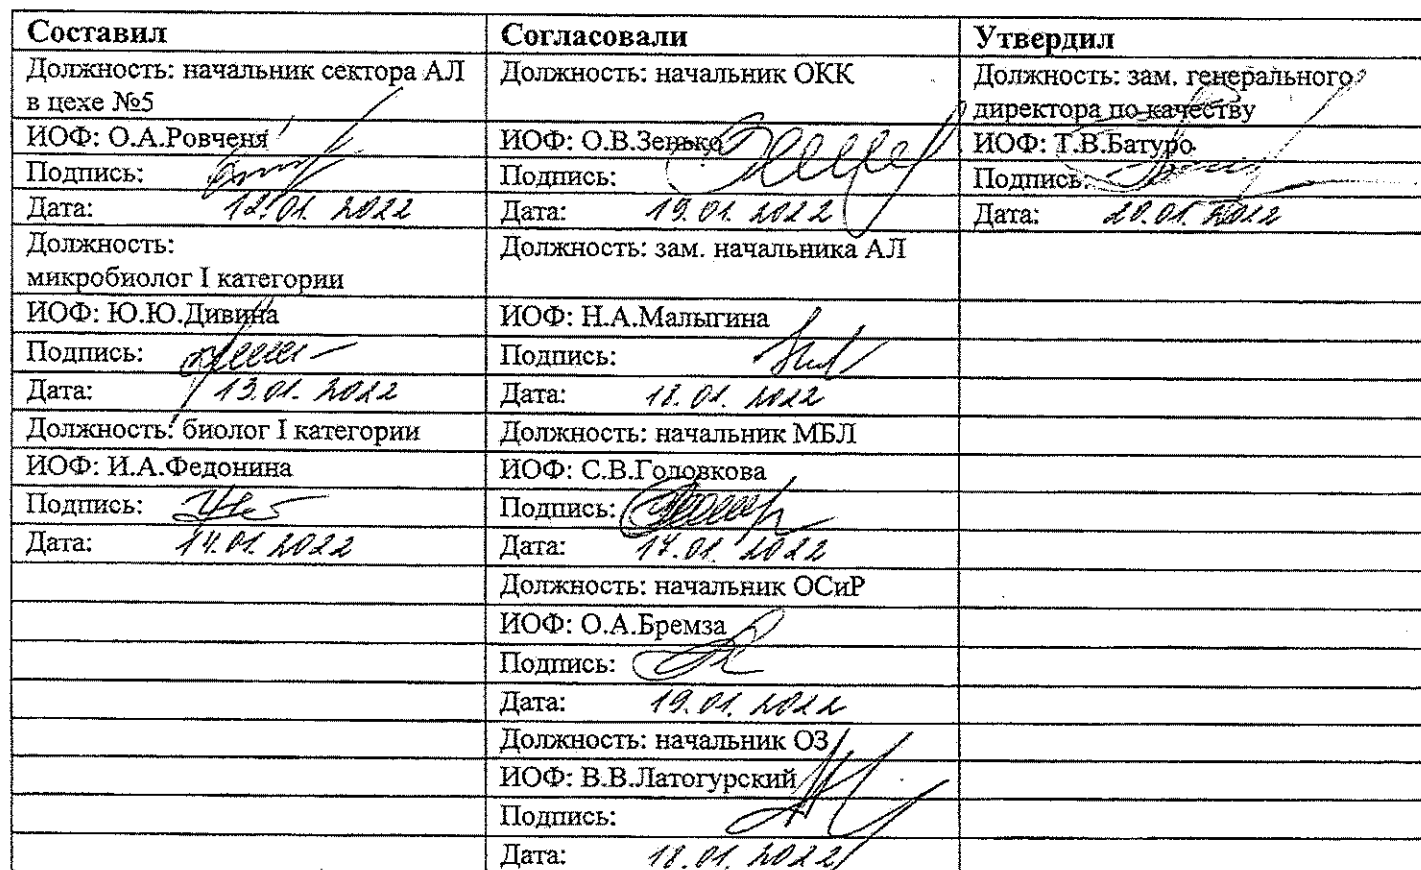 Составил Согласовали Утвердил
Должность: начальник сектора АЛ Должность: начальник ОКК Должность: зам. генерального
в цехе №5 директора по качеству
ИОФ: О.А.Ровченя ИОФ: О.В.Зенько ИОФ: Т.В.Батуро
Подпись: Подпись: Подпись:
Дата: 12.01.2022 Дата: 19.01.2022 Дата: 20.01.2022
Должность: Должность: зам. начальника АЛ
микробиолог I категории
ИОФ: Ю.Ю.Дивина ИОФ: Н.А.Малыгина
Подпись: Подпись:
Дата: 13.01.2022 Дата: 18.01.2022
Должность: биолог I категории Должность: начальник МБЛ
ИОФ: И.А.Федонина ИОФ: С.В.Головкова
Подпись: Подпись:
Дата: 14.01.2022 Дата: 17.01.2022
Должность: начальник ОСиР
ИОФ: О.А.Бремза
Подпись:
Дата: 19.01.2022
Должность: начальник ОЗ
ИОФ: В.В.Латогурский
Подпись:
Дата: 18.01.2022